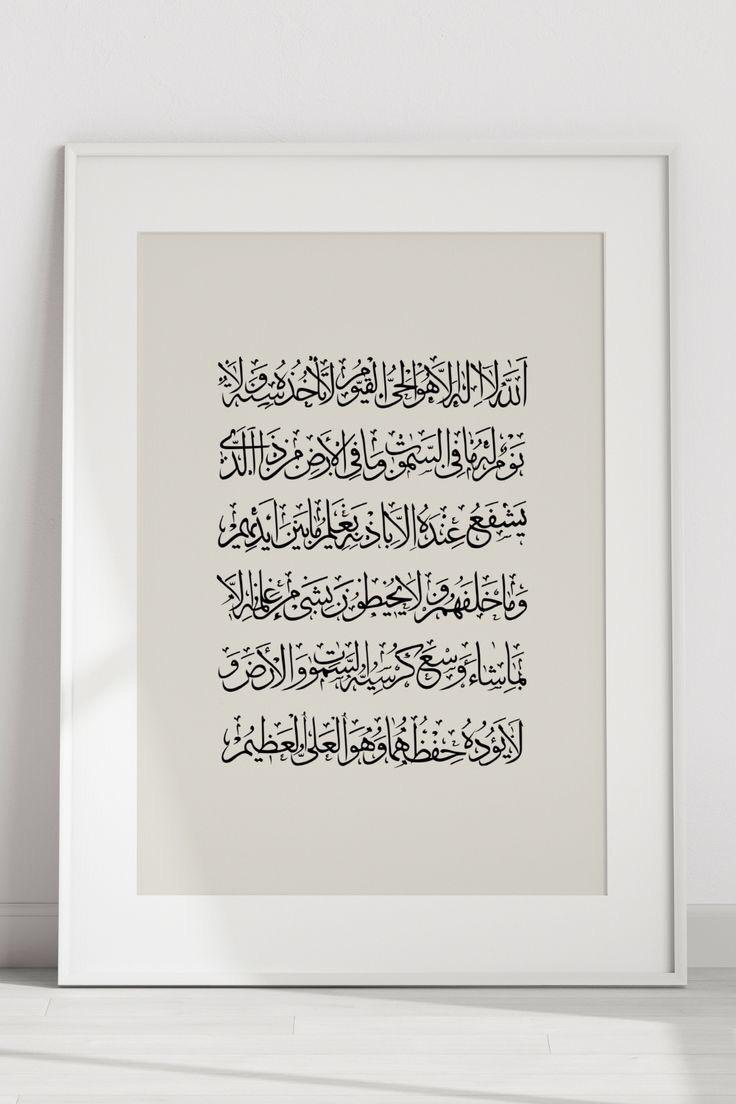 اَللّٰهُ لَا اِلٰهَ اِلَّا هُوَ الْحَيُّ الْقَيُّومُ لَا تَأْخُذُهُ سِنَةٌ وَلَا
نَوْمٌ لَهُ مَا فِي السَّمٰوَاتِ وَمَا فِي الْاَرْضِ مَنْ ذَا الَّذِي
يَشْفَعُ عِنْدَهُ اِلَّا بِاِذْنِهِ يَعْلَمُ مَا بَيْنَ اَيْدِيهِمْ
وَمَا خَلْفَهُمْ وَلَا يُحِيطُونَ بِشَيْءٍ مِنْ عِلْمِهِ اِلَّا
بِمَا شَاءَ وَسِعَ كُرْسِيُّهُ السَّمٰوَاتِ وَالْاَرْضَ وَ
لَا يَؤُدُهُ حِفْظُهُمَا وَهُوَ الْعَلِيُّ الْعَظِيمُ